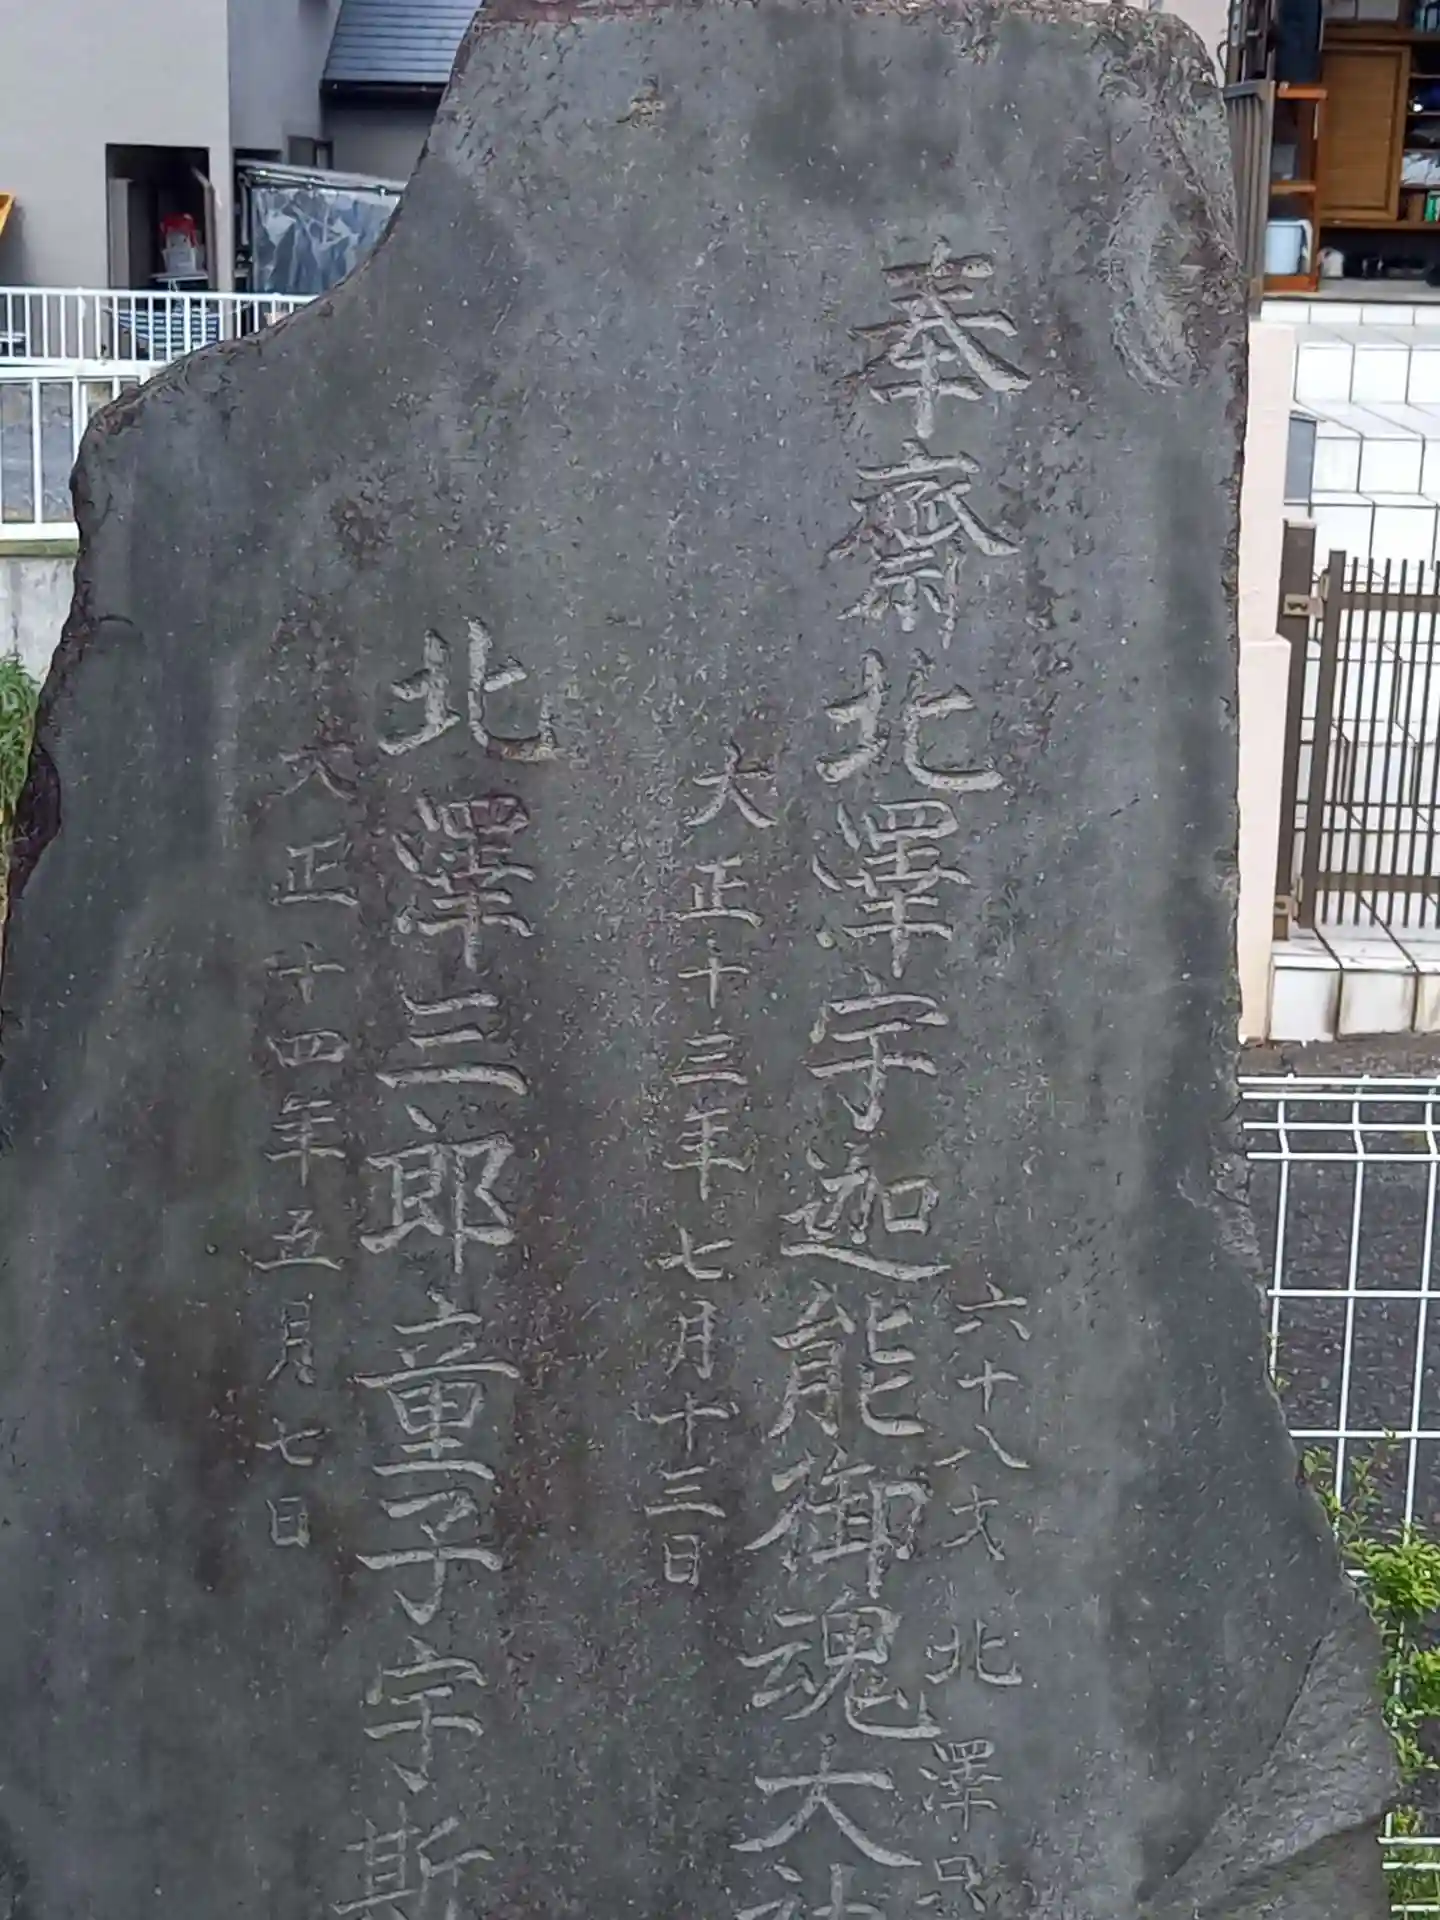 六十八才 北澤
奉齋北澤宇迦能御魂大神
大正十三年七月十三日
北澤三郎童子宇斯
大正十四年五月七日